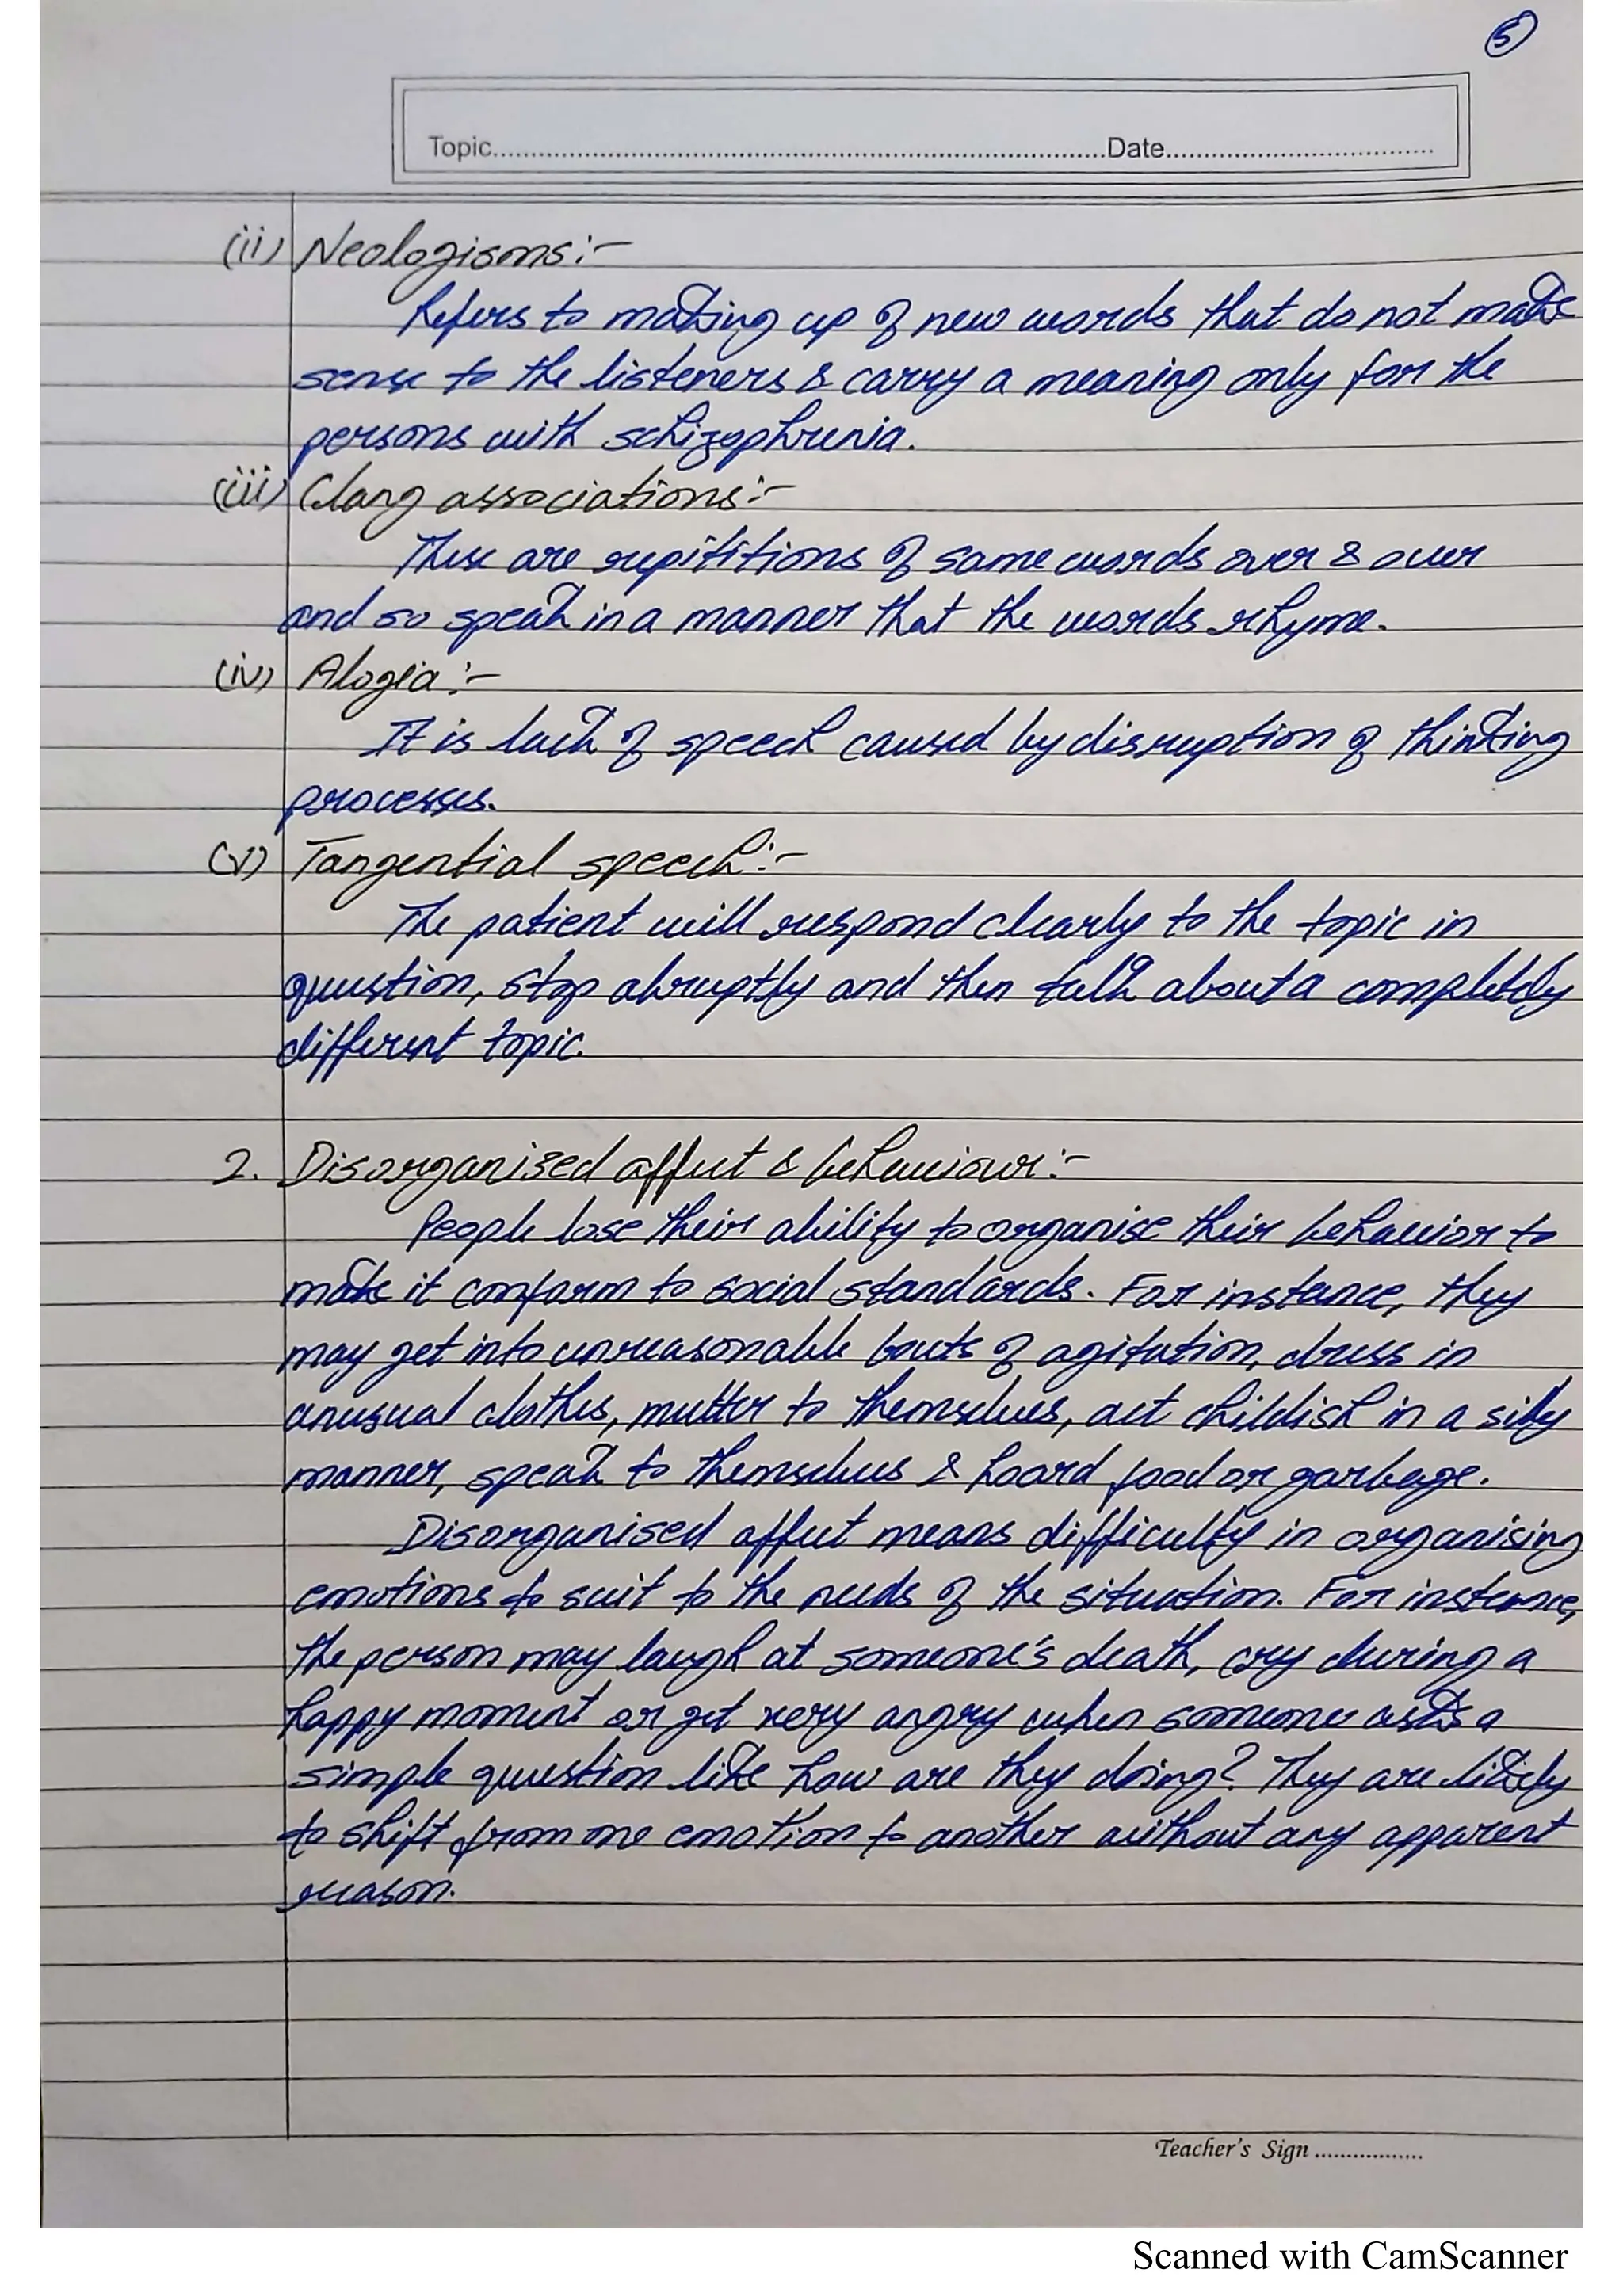 5
Topic..........Date..........
(ii) Neologisms:-
Refers to making up of new words that do not make
sense to the listeners & carry a meaning only for the
persons with schizophrenia.
(iii) Clang associations:-
These are repititions of same words over & over
and so speak in a manner that the words rhyme.
(iv) Alogia:-
It is lack of speech caused by disruption of thinking
processes.
(v) Tangential speech:-
The patient will respond clearly to the topic in
question, stop abruptly and then talk about a completely
different topic.
2. Disorganised affect & behaviour:-
People lose their ability to organise their behavior to
make it conform to social standards. For instance, they
may get into unreasonable bouts of agitation, dress in
unusual clothes, mutter to themselves, act childish in a silly
manner, speak to themselves & hoard food or garbage.
Disorganised affect means difficulty in organising
emotions to suit to the needs of the situation. For instance,
the person may laugh at someone's death, cry during a
happy moment or get very angry when someone asks a
simple question like how are they doing? They are likely
to shift from one emotion to another without any apparent
reason.
Teacher's Sign ..........
Scanned with CamScanner